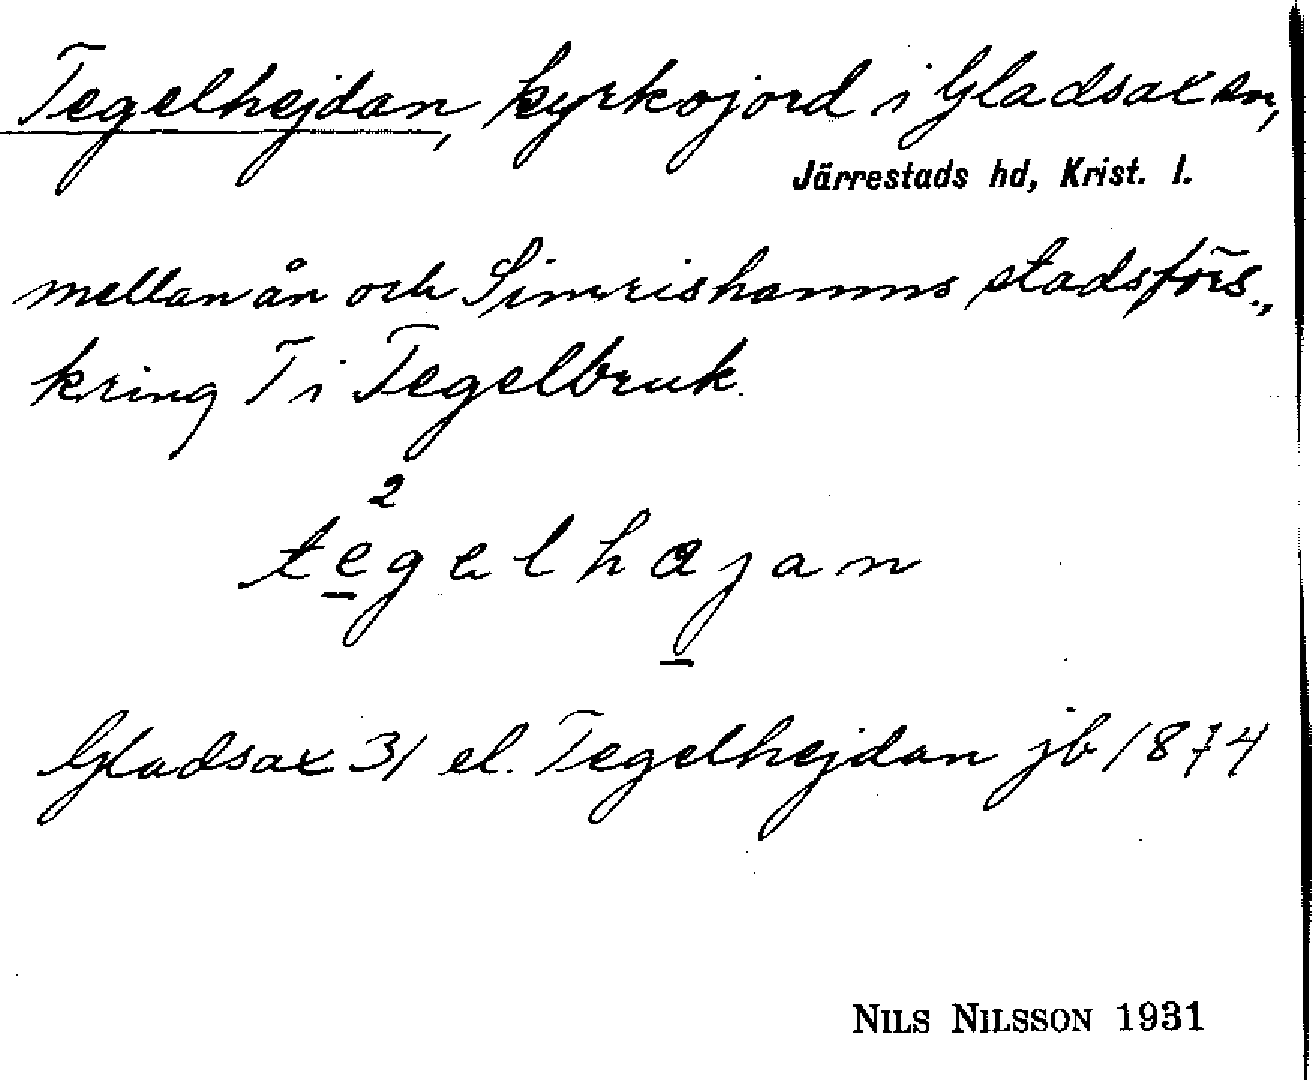 Tegelhejdan, kyrkojord i Gladsax sn,
Järrestads hd, Krist. l.
mellan ån och Simrishamns stadsförs.,
kring T i Tegelbruk.
2
tegelhæjan
Gladsax 31 el. Tegelhejdan jb 1874
NILS NILSSON 1931